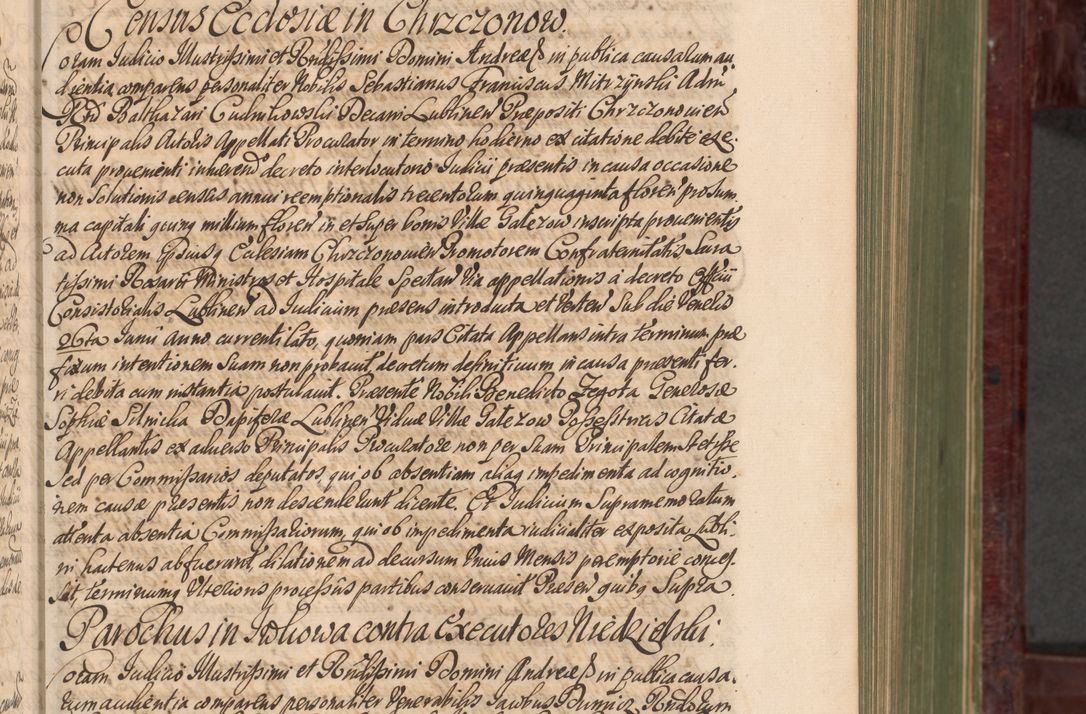 Census Ecclesiæ in Chrzczonow.
Coram Judicio Illustrissimi et Rndissimi Domini Andreæ in publica causarum au
dientia comparens personaliter Nobilis Sebastianus Franciscus Mitrzynski Adm
Rndi Balthazari Decani Lublinen Præpositi Chrzczonovien
Principalis Actoris Appellati Procurator in termino hodierno ex citatione debite exe
cuta provenienti inhæren decreto interlocutorio Judicii præsentis in causa occasione
non Solutionis census annui reemptionalis trecentorum quinquaginta floren pro sum
ma capitali quinq millium floren in et super bonis Villæ Gałezow inscripta provenientis
ad Actorem Ipsiusq Ecclesiam Chrzczonovien Promotorem Confraternitatis Sacra
tissimi Rosarii Ministros et Hospitale Spectan Via appellationis à decreto Officii
Consistorialis Lublinen ad Judicium præsens introducta et Verten Sub die Veneris
26ta Junii Anno currenti lato, quoniam pars Citata Appellans intra terminum præ
fixum intentionem Suam non probavit decretum definitivum in causa præsenti fer
ri debita cum instantia postulavit. Præsente Nobili Benedicto Zegota Generosæ
Sophiæ Silnicka Dapiferæ Lublinen Viduæ Villæ Gałezow Possessricis Citatæ
Appellantis ex adverso Principalis Procuratore non per Suam Principalem Stetisse
Sed per Commissarios deputatos, qui ob absentiam aliaq impedimenta ad cognitio
nem causæ præsentis non descenderunt dicente. Et Judicium Supramemoratum
attenta absentia Commissariorum, qui ob impedimenta judicialiter exposita Lubli
ni hactenus abfuerant, dilationem ad decursum Unius Mensis peremptorie conces
sit, terminumq Ulterioris processus partibus conservavit Præsen quibq Supra.
Parochus in contra Executores Niedzielski.
Coram Judicio Illustrissimi et Rndissimi Domini Andreæ in publica causa
rum audientia comparens personaliter Venerabilis Jacobus Rndorum